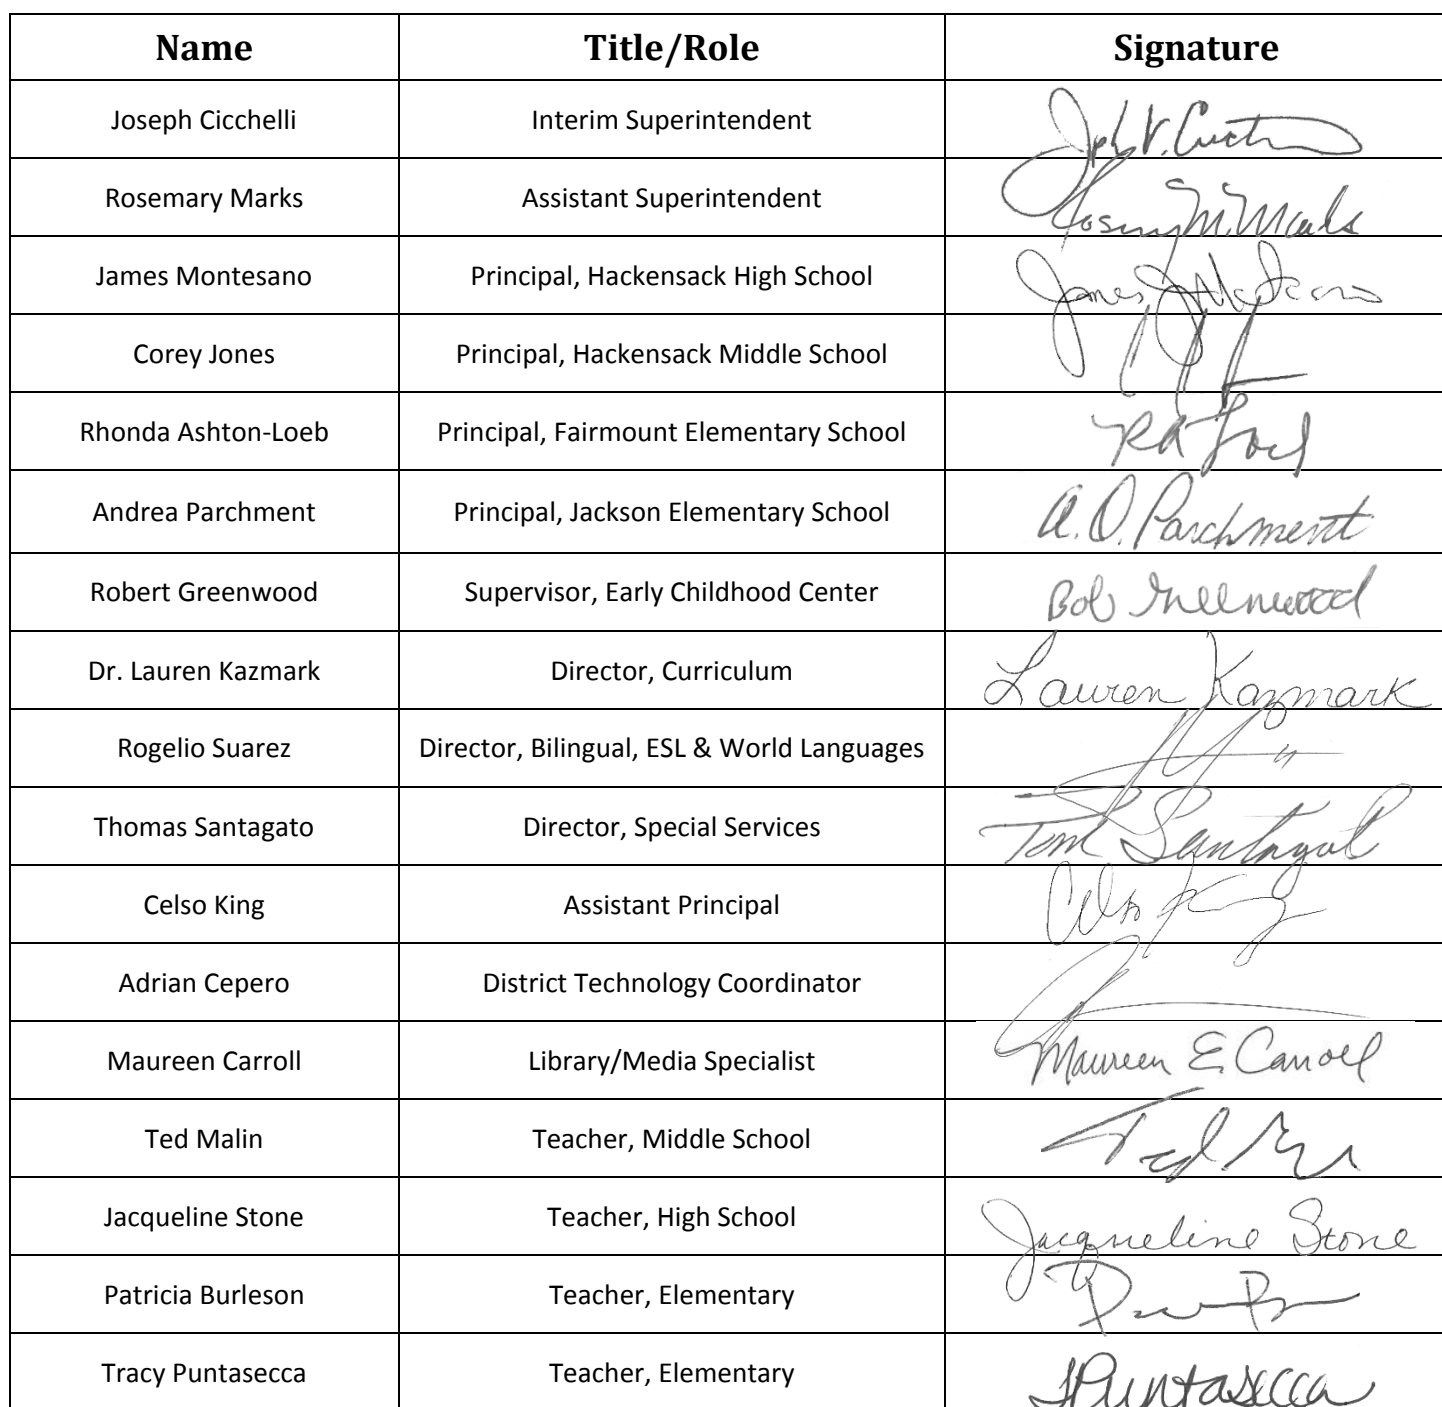 Name Title/Role Signature
Joseph Cicchelli Interim Superintendent
Rosemary Marks Assistant Superintendent Rosemary M. Marks
James Montesano Principal, Hackensack High School James
Corey Jones Principal, Hackensack Middle School
Rhonda Ashton-Loeb Principal, Fairmount Elementary School
Andrea Parchment Principal, Jackson Elementary School A.O. Parchment
Robert Greenwood Supervisor, Early Childhood Center Bob Greenwood
Dr. Lauren Kazmark Director, Curriculum Lauren Kazmark
Rogelio Suarez Director, Bilingual, ESL & World Languages
Thomas Santagato Director, Special Services Tom Santagato
Celso King Assistant Principal Celso King
Adrian Cepero District Technology Coordinator
Maureen Carroll Library/Media Specialist Maureen E. Carroll
Ted Malin Teacher, Middle School Ted
Jacqueline Stone Teacher, High School Jacqueline Stone
Patricia Burleson Teacher, Elementary
Tracy Puntasecca Teacher, Elementary TPuntasecca